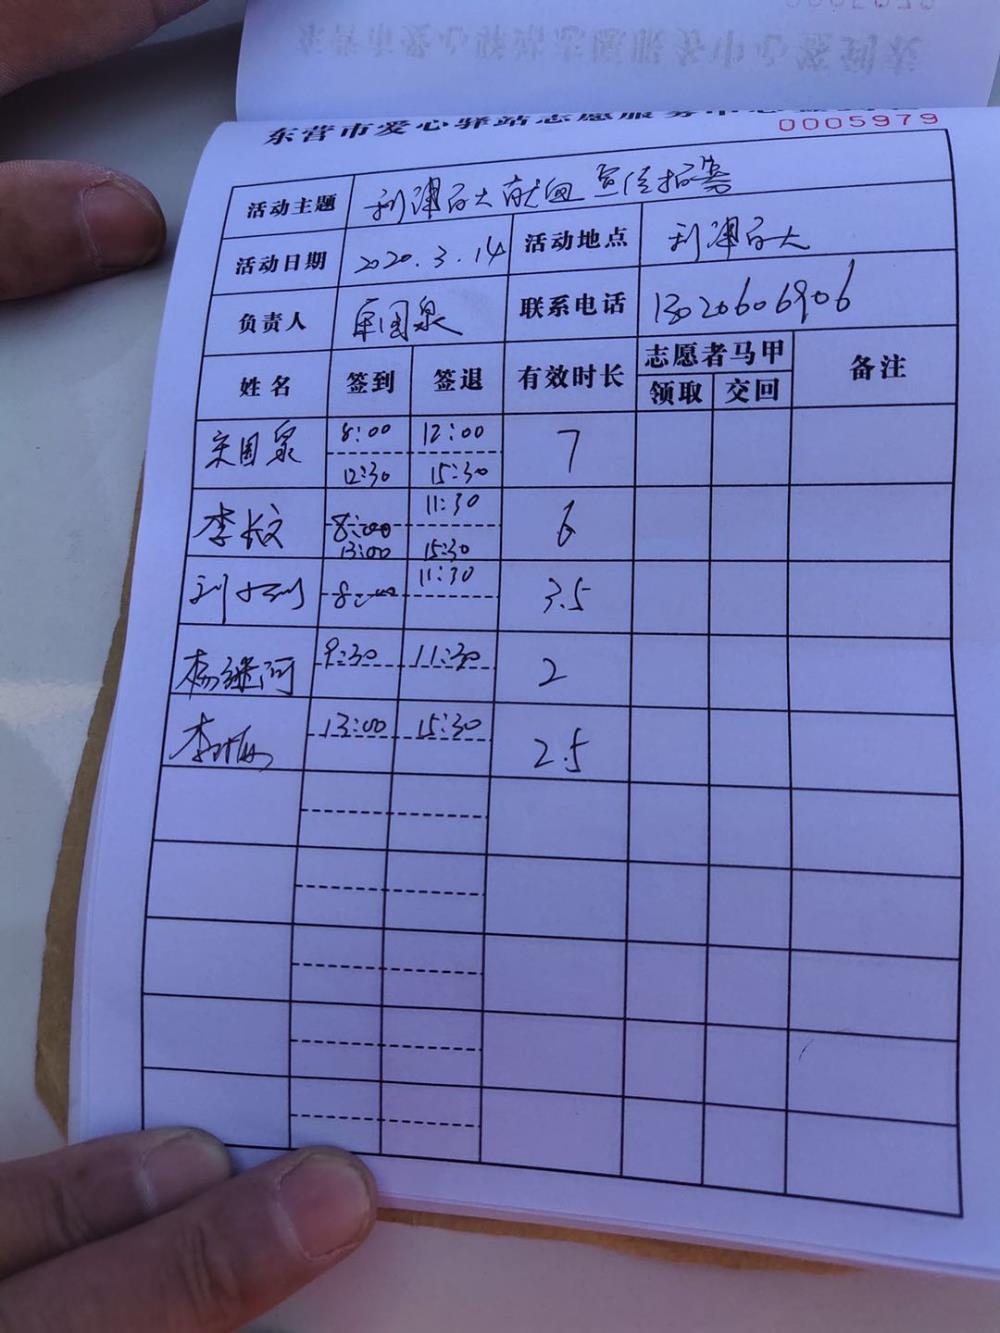 东营市爱心驿站志愿服务中心签到表
0005979
活动主题 利津百大献血宣传招募
活动日期 2020.3.14 活动地点 利津百大
负责人 宋国泉 联系电话 13020606906
姓名 签到 签退 有效时长 志愿者马甲 备注
领取 交回
宋国泉 8:00 12:00 7
12:30 15:30
李长文 8:00 11:30 6
13:00 15:30
8:00 11:30 3.5
杨继河 9:30 11:30 2
13:00 15:30 2.5